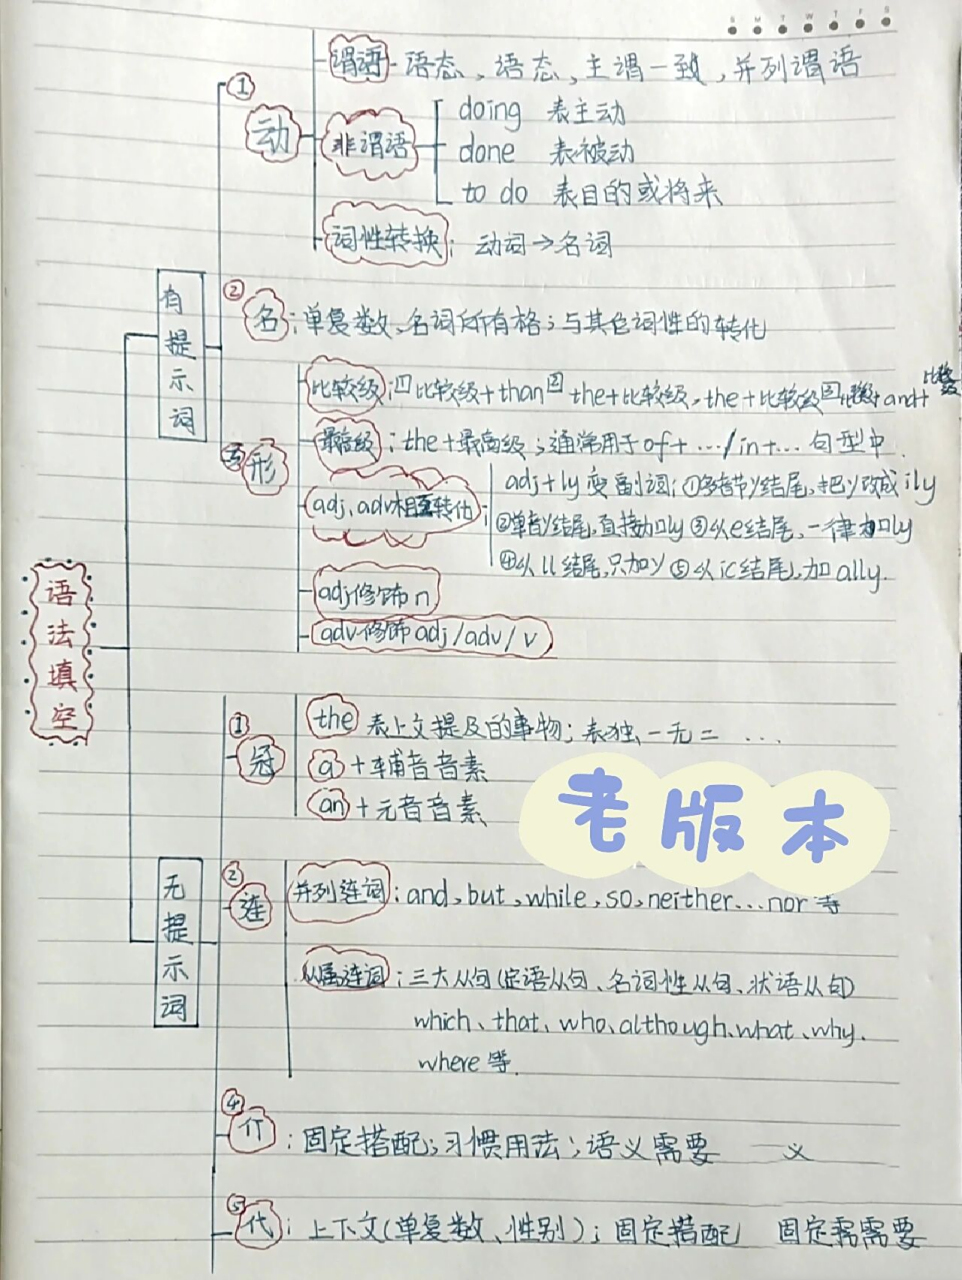 S M T W T F S
谓语 - 语态，语态，主谓一致，并列谓语
①
动
非谓语
doing 表主动
done 表被动
to do 表目的或将来
词性转换：动词→名词
有提示词
②
名：单复数、名词所有格；与其他词性的转化
③
形
比较级：① 比较级+than ② the+比较级，the+比较级 ③ 比较级+and+比较级
最高级：the+最高级；通常用于of+…/in+…句型中.
adj、adv相互转化：
adj+ly变副词：①多音节y结尾，把y改成ily
②单音y结尾，直接加ly ③以e结尾，一律加ly
④以ll结尾，只加y ⑤以ic结尾，加ally.
adj修饰n
adv修饰adj/adv/v
语法填空
①
冠
the 表上文提及的事物；表独一无二 ...
a +辅音音素
an +元音音素
老版本
无提示词
②
连
并列连词：and, but, while, so, neither...nor等
从属连词：三大从句(定语从句、名词性从句、状语从句)
which、that、who、although、what、why、
where等.
④
介：固定搭配；习惯用法；语义需要 义
⑤
代：上下文(单复数、性别)；固定搭配 固定需需要